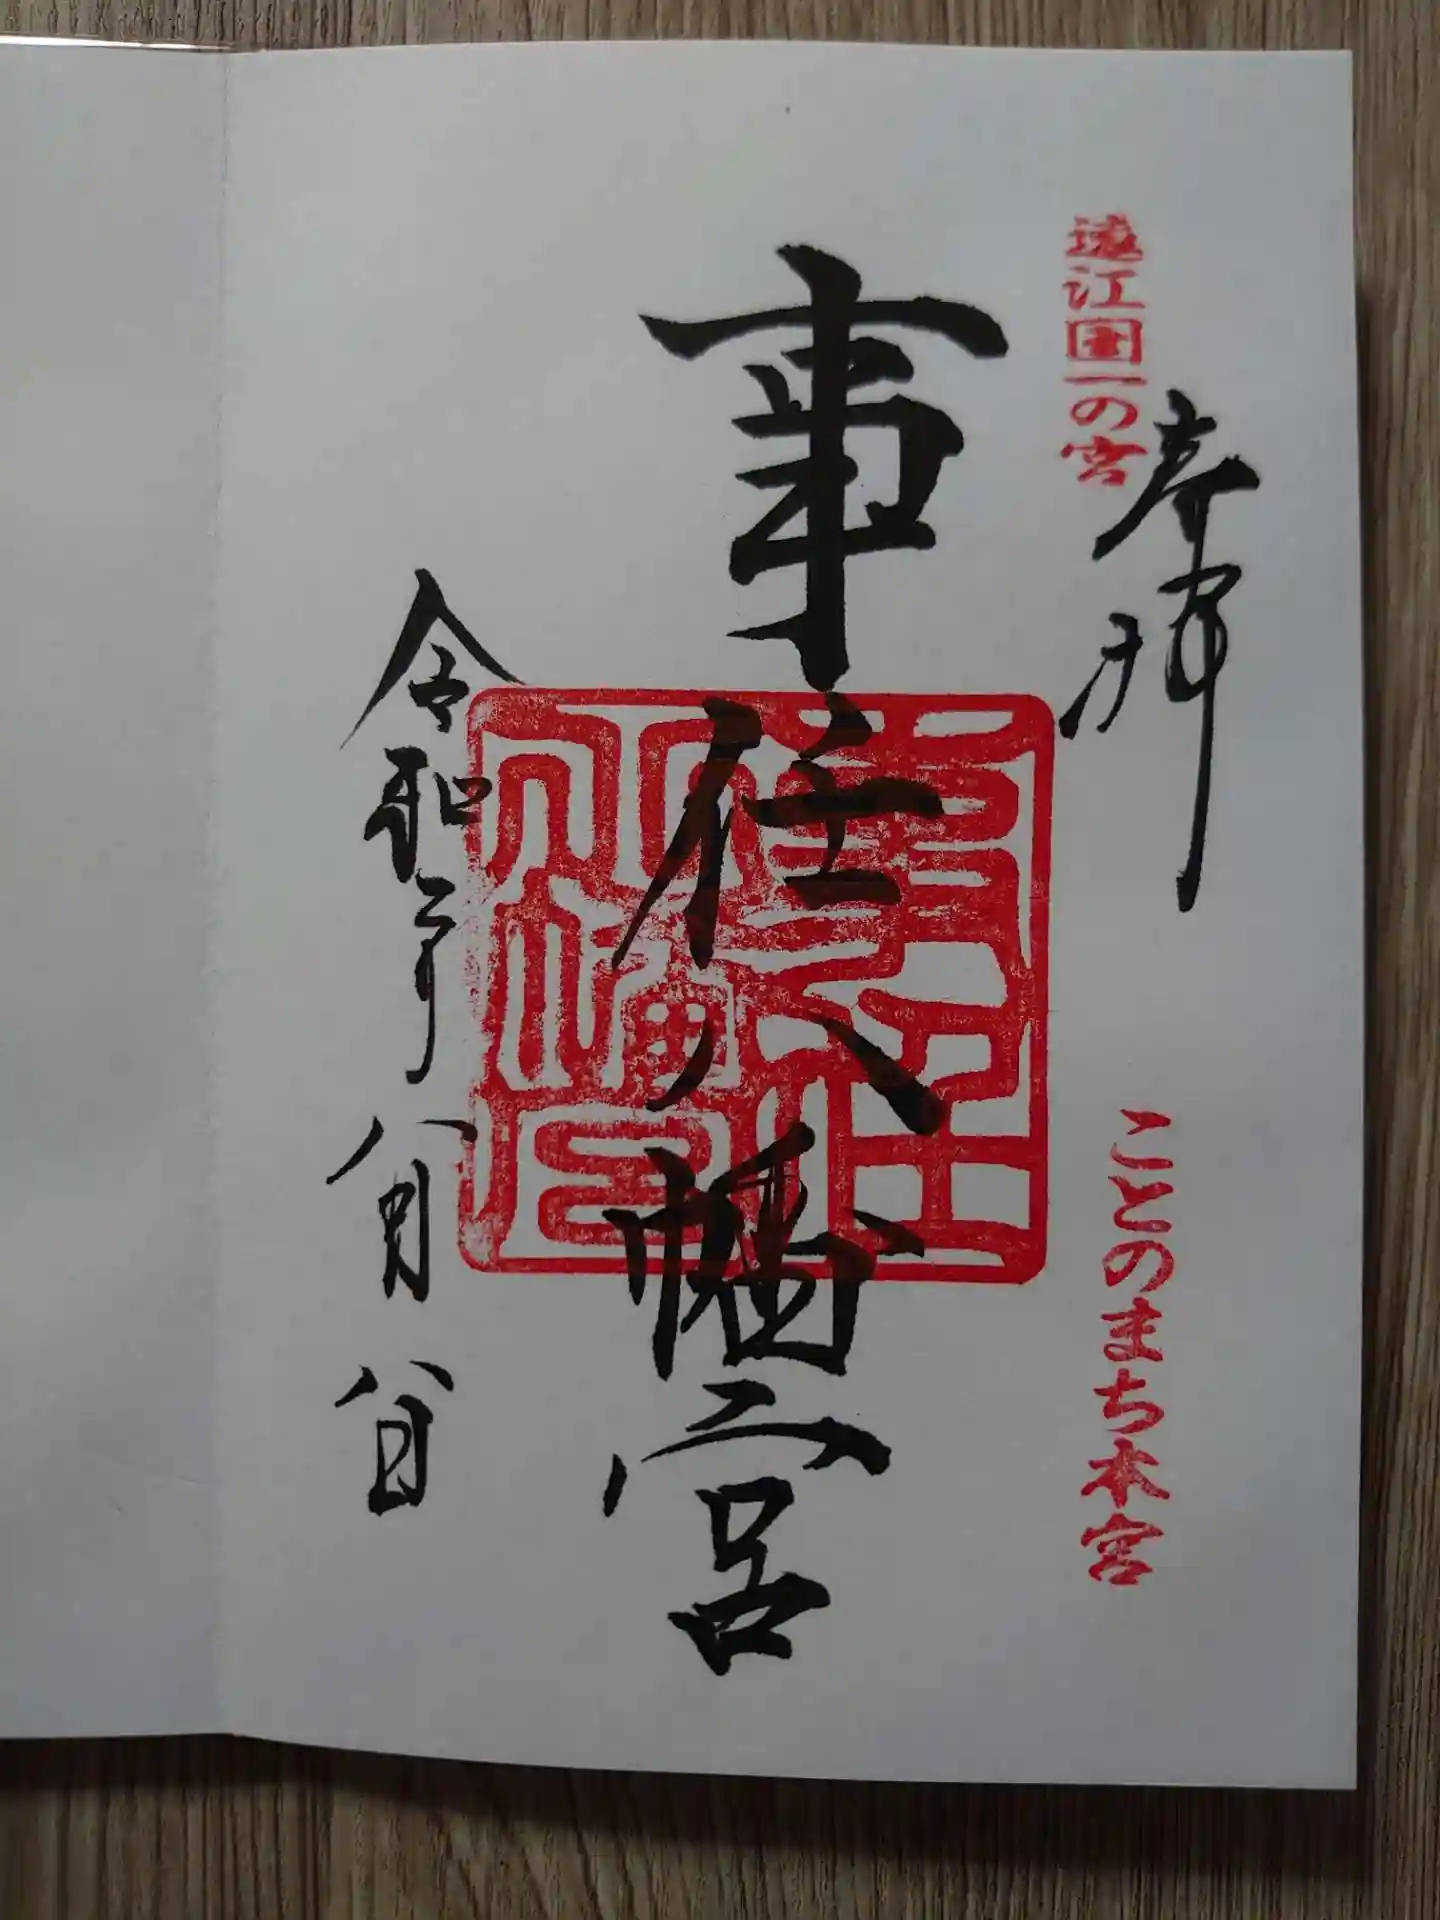 遠江国一の宮
奉拝
ことのまち本宮
事任八幡宮
事任八幡宮
令和二年八月八日